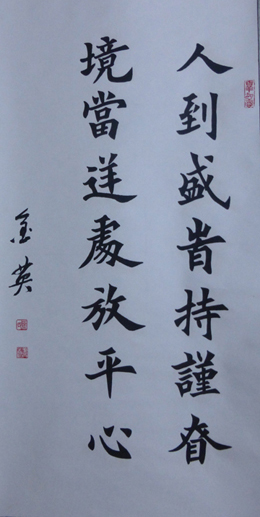 人到盛旹持謹眘
境當逆處放平心
金英